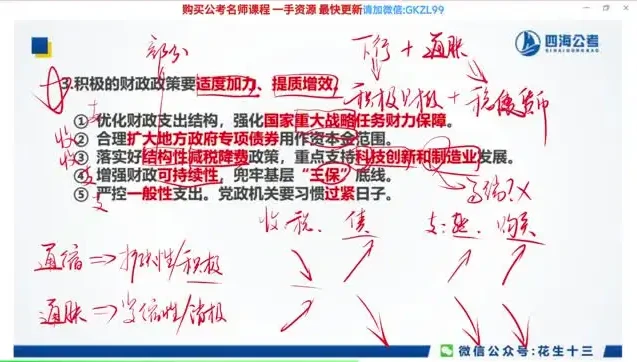 购买公考名师课程 一手资源 最快更新请加微信:GKZL99
四海公考
SIHAIGONGKAO
部分
下行+通胀
积极财政+稳健货币
3.积极的财政政策要适度加力、提质增效。
① 优化财政支出结构，强化国家重大战略任务财力保障。
② 合理扩大地方政府专项债券用作资本金范围。
③ 落实好结构性减税降费政策，重点支持科技创新和制造业发展。
④ 增强财政可持续性，兜牢基层“三保”底线。
⑤ 严控一般性支出。党政机关要习惯过紧日子。
支
收
收
支
支
高端?X
收:税. 债 支: 购买
通缩⇒扩张性/积极
通胀⇒紧缩性/消极
微信公众号:花生十三